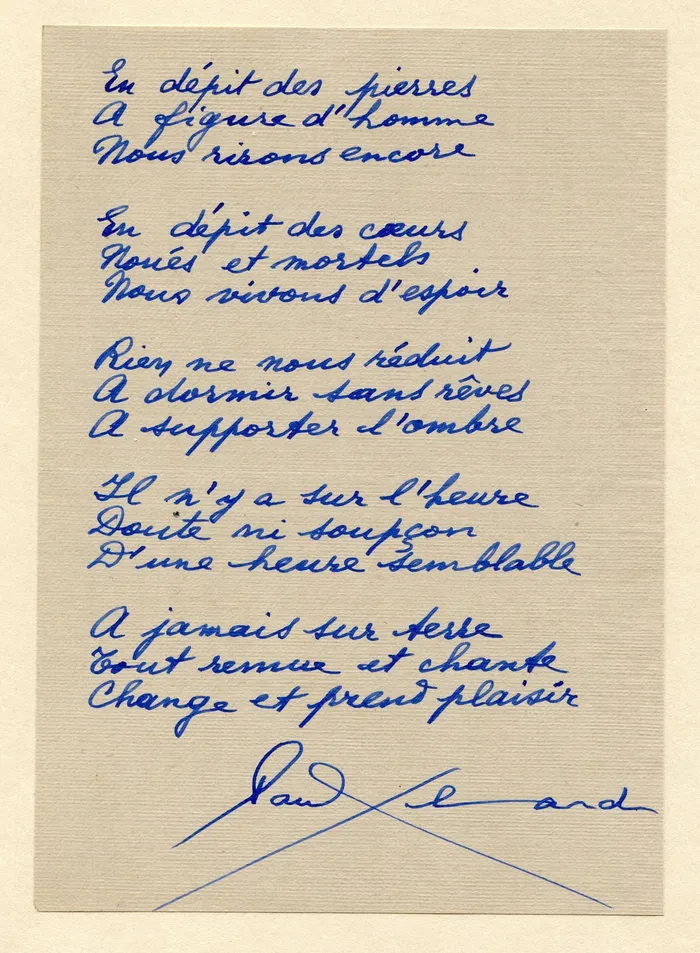 En dépit des pierres
A figure d'homme
Nous rirons encore
En dépit des cœurs
Noués et mortels
Nous vivons d'espoir
Rien ne nous réduit
A dormir sans rêves
A supporter l'ombre
Il n'y a sur l'heure
Doute ni soupçon
D'une heure semblable
A jamais sur terre
Tout remue et chante
Change et prend plaisir
Paul Eluard